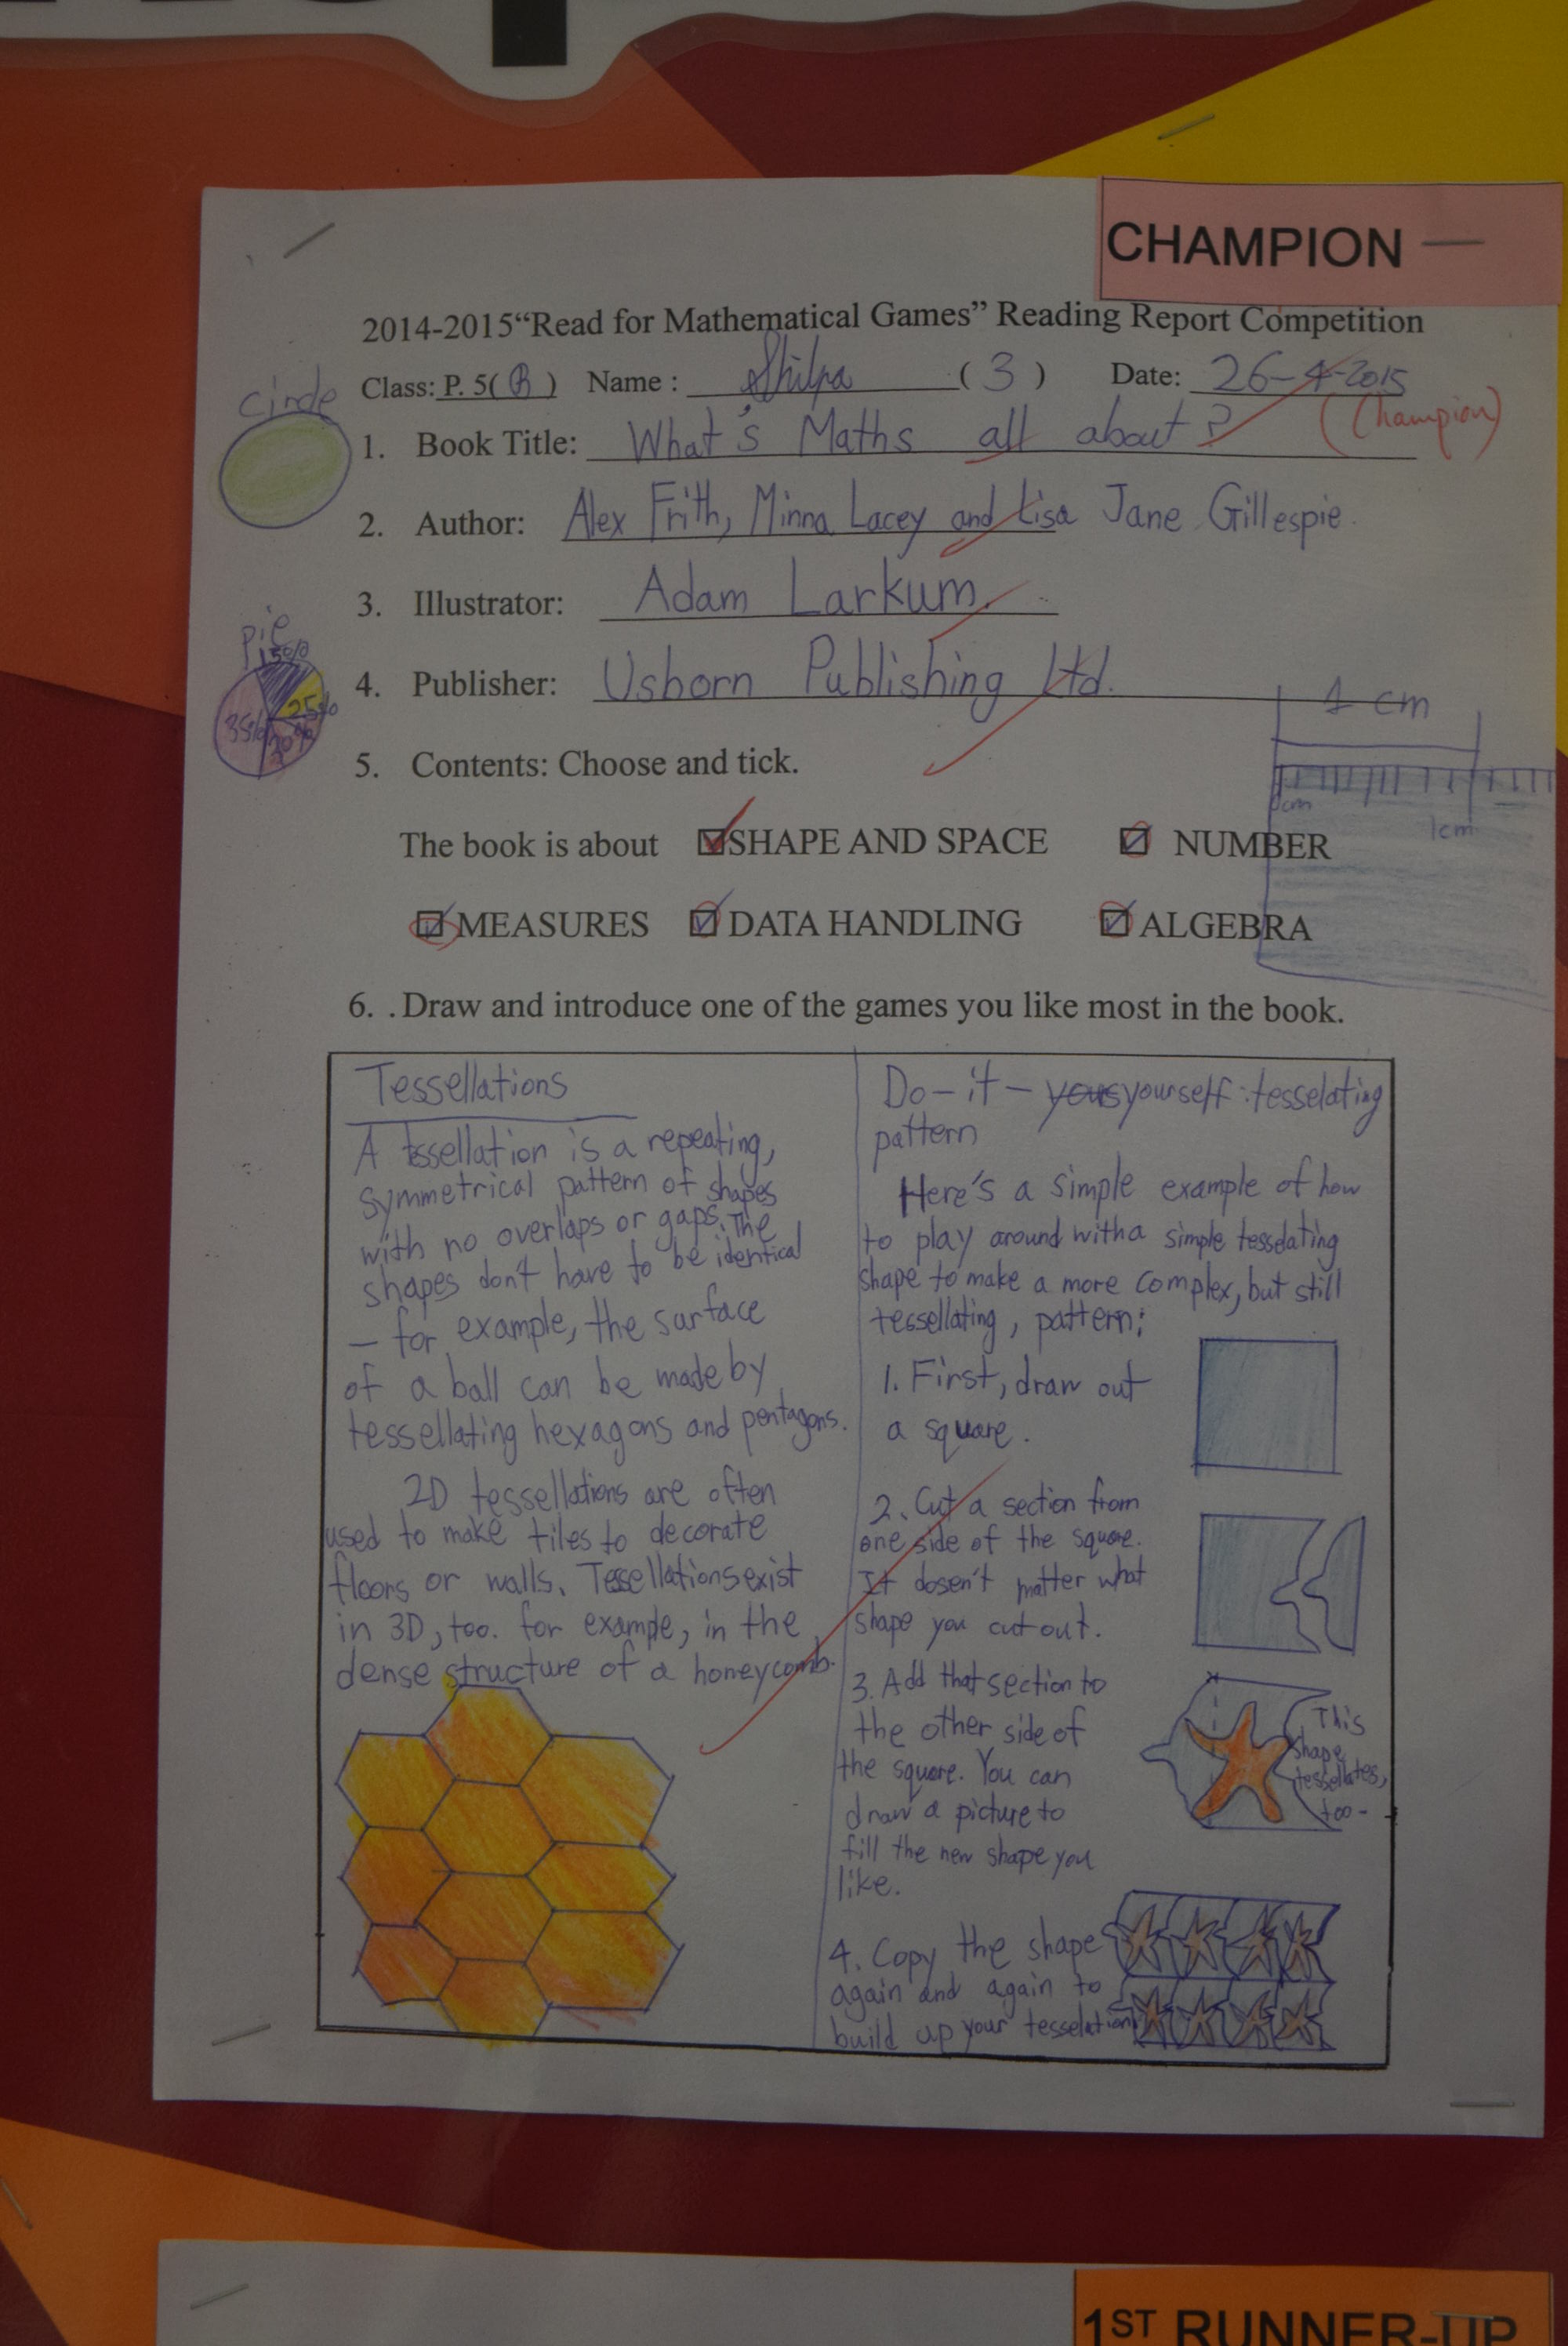 CHAMPION
2014-2015“Read for Mathematical Games” Reading Report Competition
Class: P. 5( B ) Name : Shilpa ( 3 ) Date: 26-4-2015
(Champion)
circle
1. Book Title: What's Maths all about ?
2. Author: Alex Frith, Minna Lacey and Lisa Jane Gillespie.
3. Illustrator: Adam Larkum.
pie
15%
25%
35%
4. Publisher: Usborn Publishing Ltd.
1 cm
0cm
1cm
5. Contents: Choose and tick.
The book is about ☑SHAPE AND SPACE ☑ NUMBER
☑MEASURES ☑DATA HANDLING ☑ALGEBRA
6. . Draw and introduce one of the games you like most in the book.
Tessellations
A tssellation is a repeating,
symmetrical pattern of shapes
with no overlaps or gaps. The
shapes don't have to be identical
— for example, the surface
of a ball can be made by
tessellating hexagons and pentagons.
2D tessellations are often
used to make tiles to decorate
floors or walls. Tessellations exist
in 3D, too. for example, in the
dense structure of a honeycomb.
Do-it-yoursyourself:tesselating
pattern
Here's a simple example of how
to play around with a simple tesselating
shape to make a more complex, but still
tessellating, pattern:
1. First, draw out
a square.
2. Cut a section from
one side of the square.
It dosen't matter what
shape you cut out.
3. Add that section to
the other side of
the square. You can
draw a picture to
fill the new shape you
like.
This
shape
tessellates,
too-
4. Copy the shape
again and again to
build up your tesselation
1ST RUNNER-UP